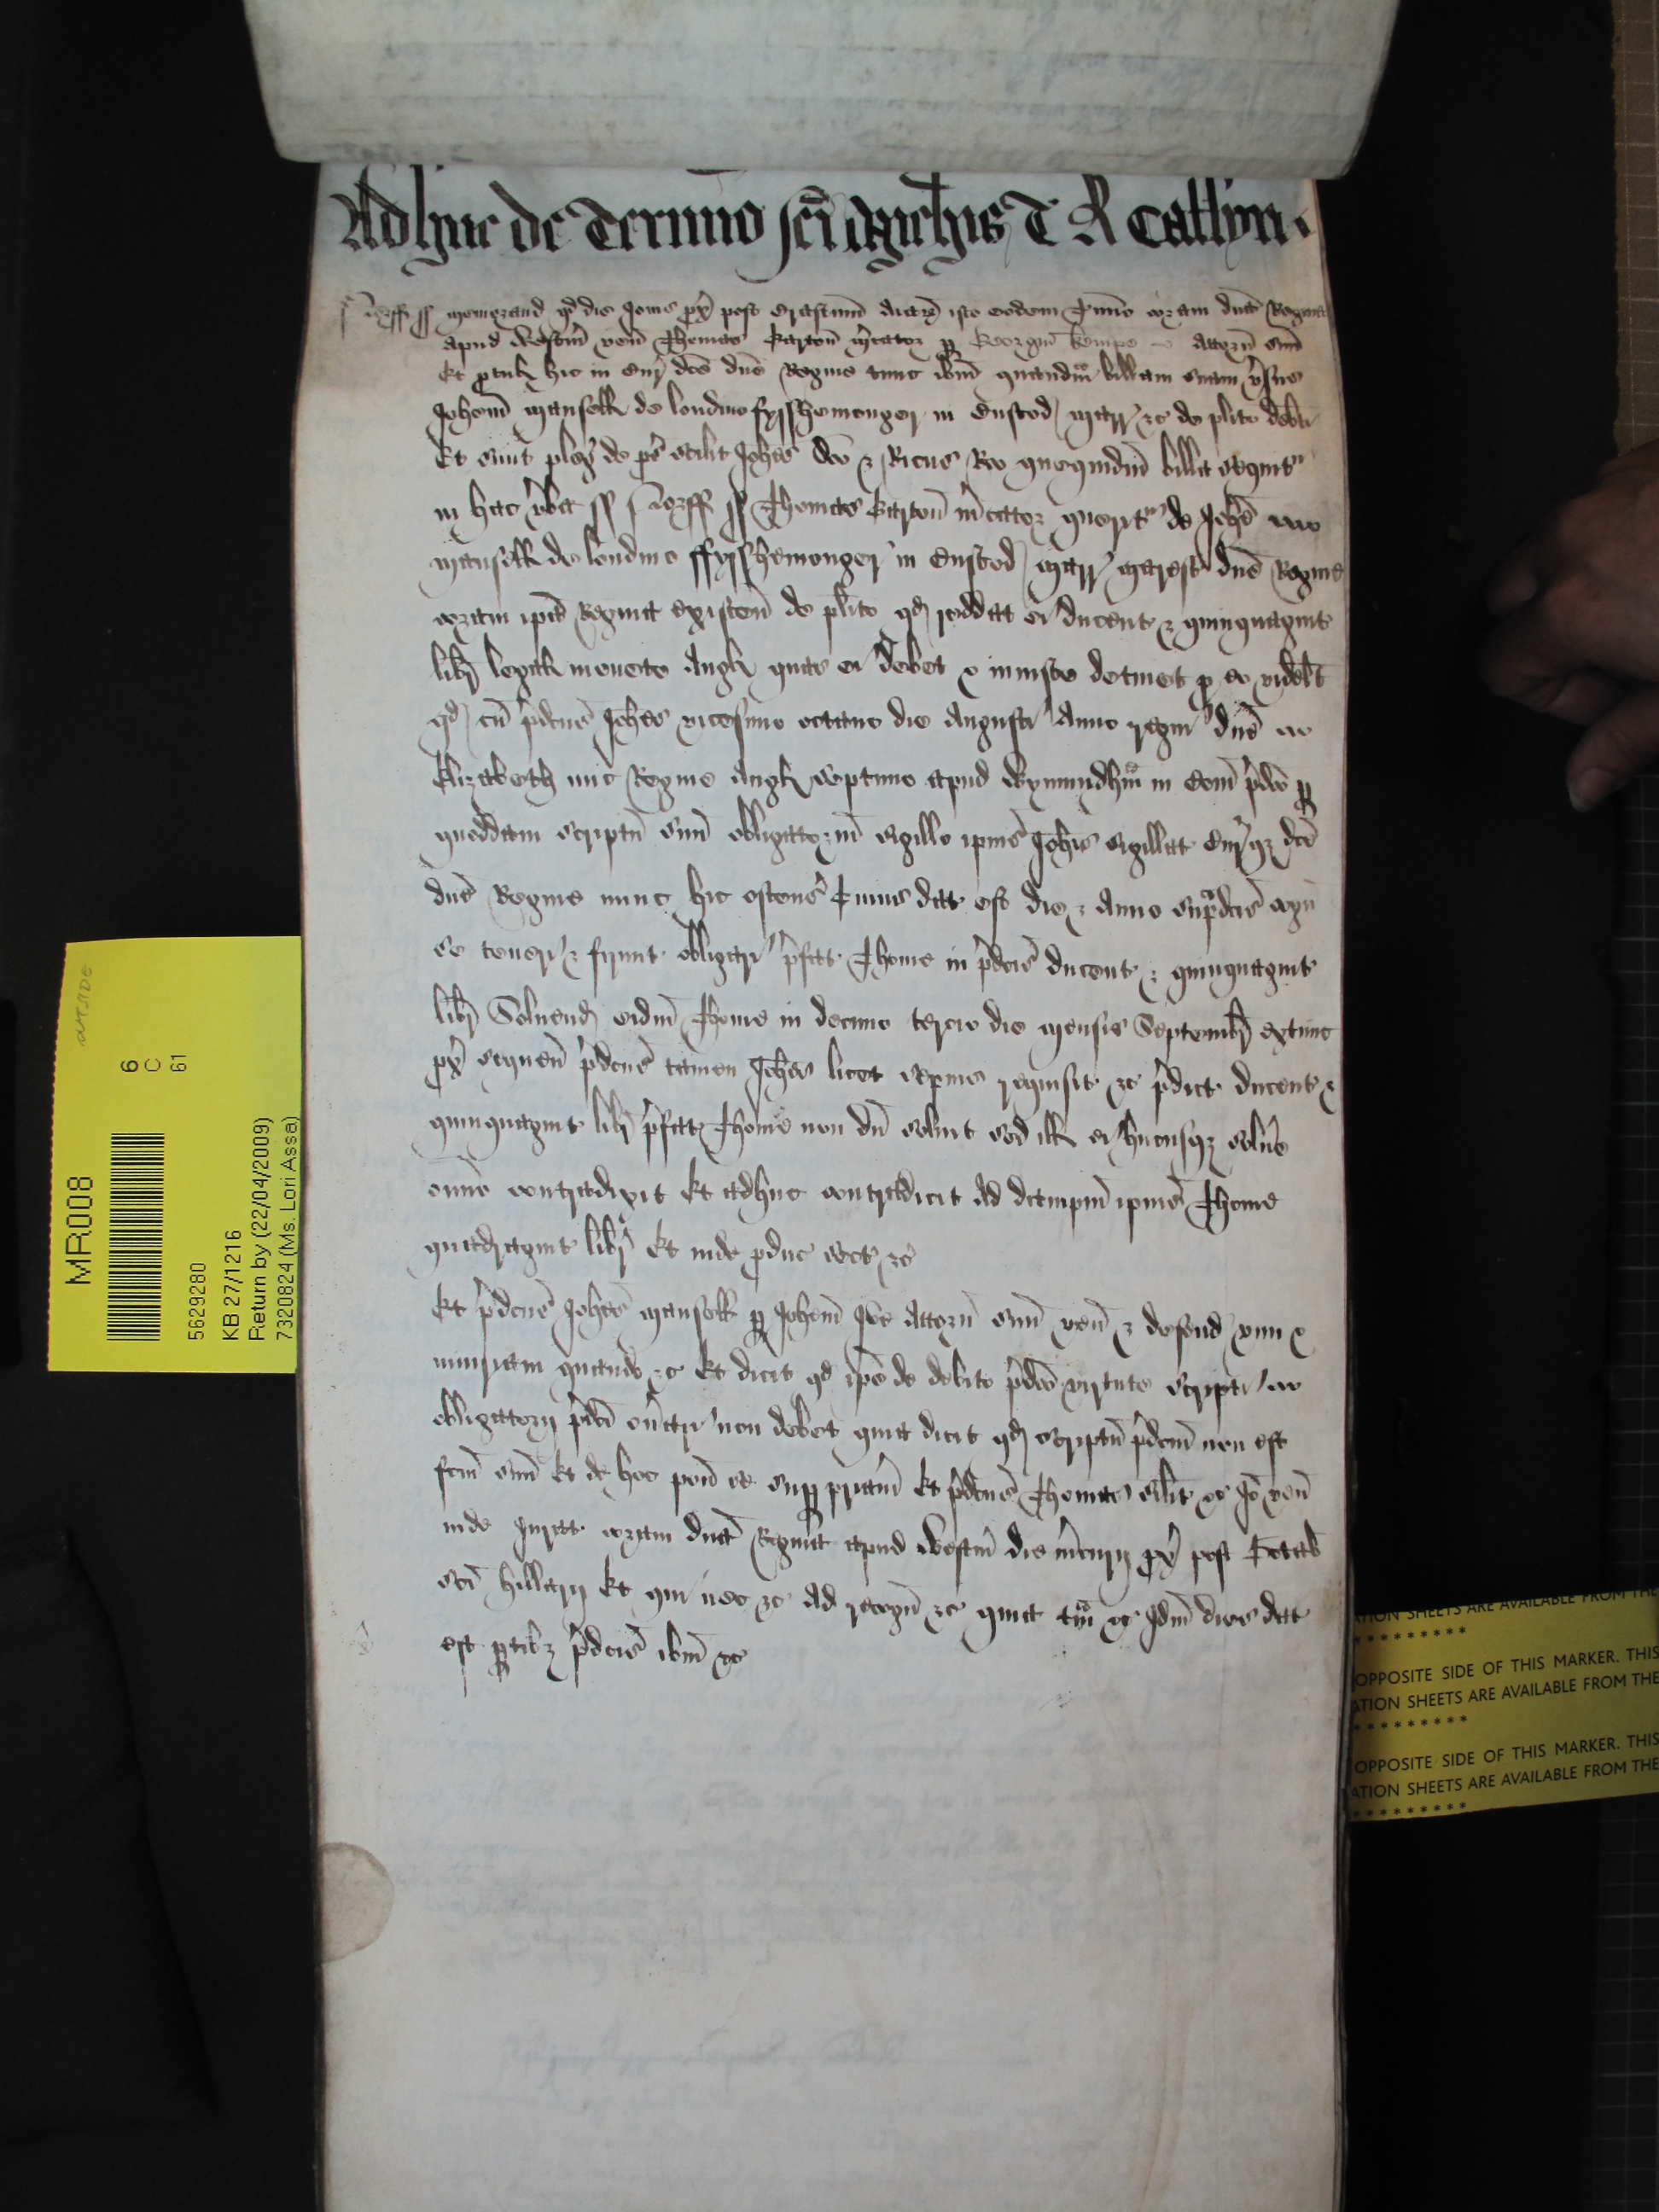 Adhuc de Termino sci Michis T R Catlyn
Norff ss Memorand qd die Jovis px post Crastinu Animar isto eodem Tmino coram dna Regina
apud Westm ven Thomas Barton mcator p Georgiu Kempe Attorn suu
Et ptulit hic in Cur dce dne Regine tunc ibm quandm billam suam vsus
Johem Mansell de london fysshemonger in Custod Marr &c de plito debi
Et sunt pleg de ps scilt Johes Doo & Ricus Roo quequidm billa sequit
in hec vba ss Norff ss Thomas Barton mcator querit de Johe
Mansell de london ffysshemonger in Custod Marr Maresc dne Regine
coram ipa Regina existen de plito qd reddat ei ducent & quinquagint
libr legalis monete Angl quas ei debet & iniuste detinet p eo videlt
qd cu pdcus Johes vicesimo octavo die Augusti Anno regni dne
Elizabeth nuc Regine Angl septimo apud Wymundhm in Com pdco p
quoddam scriptu suu obligatoriu sigillo ipius Johis sigillat Curq dce
dne Regine nunc hic ostens Cuius dat est die & Anno supadcis cogn
se teneri & firmit obligari pfat Thome in pdcis ducent & quinquagint
libr Solvend eidm Thome in decimo tercio die Mensis Septembr extunc
px sequen pdcus tamen Johes licet sepius requisit &c pdict ducent &
quinquagint libr pfat Thome non du solvit sed ill ei hucusq solve
omno contradixit Et adhuc contradicit Ad dampnu ipius Thome
quadragint libr Et inde pduc sect &c
Et pdcus Johes Mansell p Johem Ive Attorn suu ven & defend vim &
iniuriam quando &c Et dicit qd ipe de debito pdco virtute scripti
obligatorij pdci onari non debet quia dicit qd scriptu pdcm non est
fcm suu Et de hoc pon se sup priam Et pdcus Thomas silit &c Io ven
inde Jurat coram dna Regina apud Westm die mcurij px post Octab
sci hillarij Et qui nec &c Ad recogn &c quia tam &c Idm dies dat
est ptibz pdcis ibm &c
MR008
6
C
61
5629280
KB 27/1216
Return by (22/04/2009)
7320824 (Ms. Lori Assa)
ATION SHEETS ARE AVAILABLE FROM THE
* * * * * * * * *
OPPOSITE SIDE OF THIS MARKER. THIS
ATION SHEETS ARE AVAILABLE FROM THE
* * * * * * * * *
OPPOSITE SIDE OF THIS MARKER. THIS
ATION SHEETS ARE AVAILABLE FROM THE
* * * * * * * * *